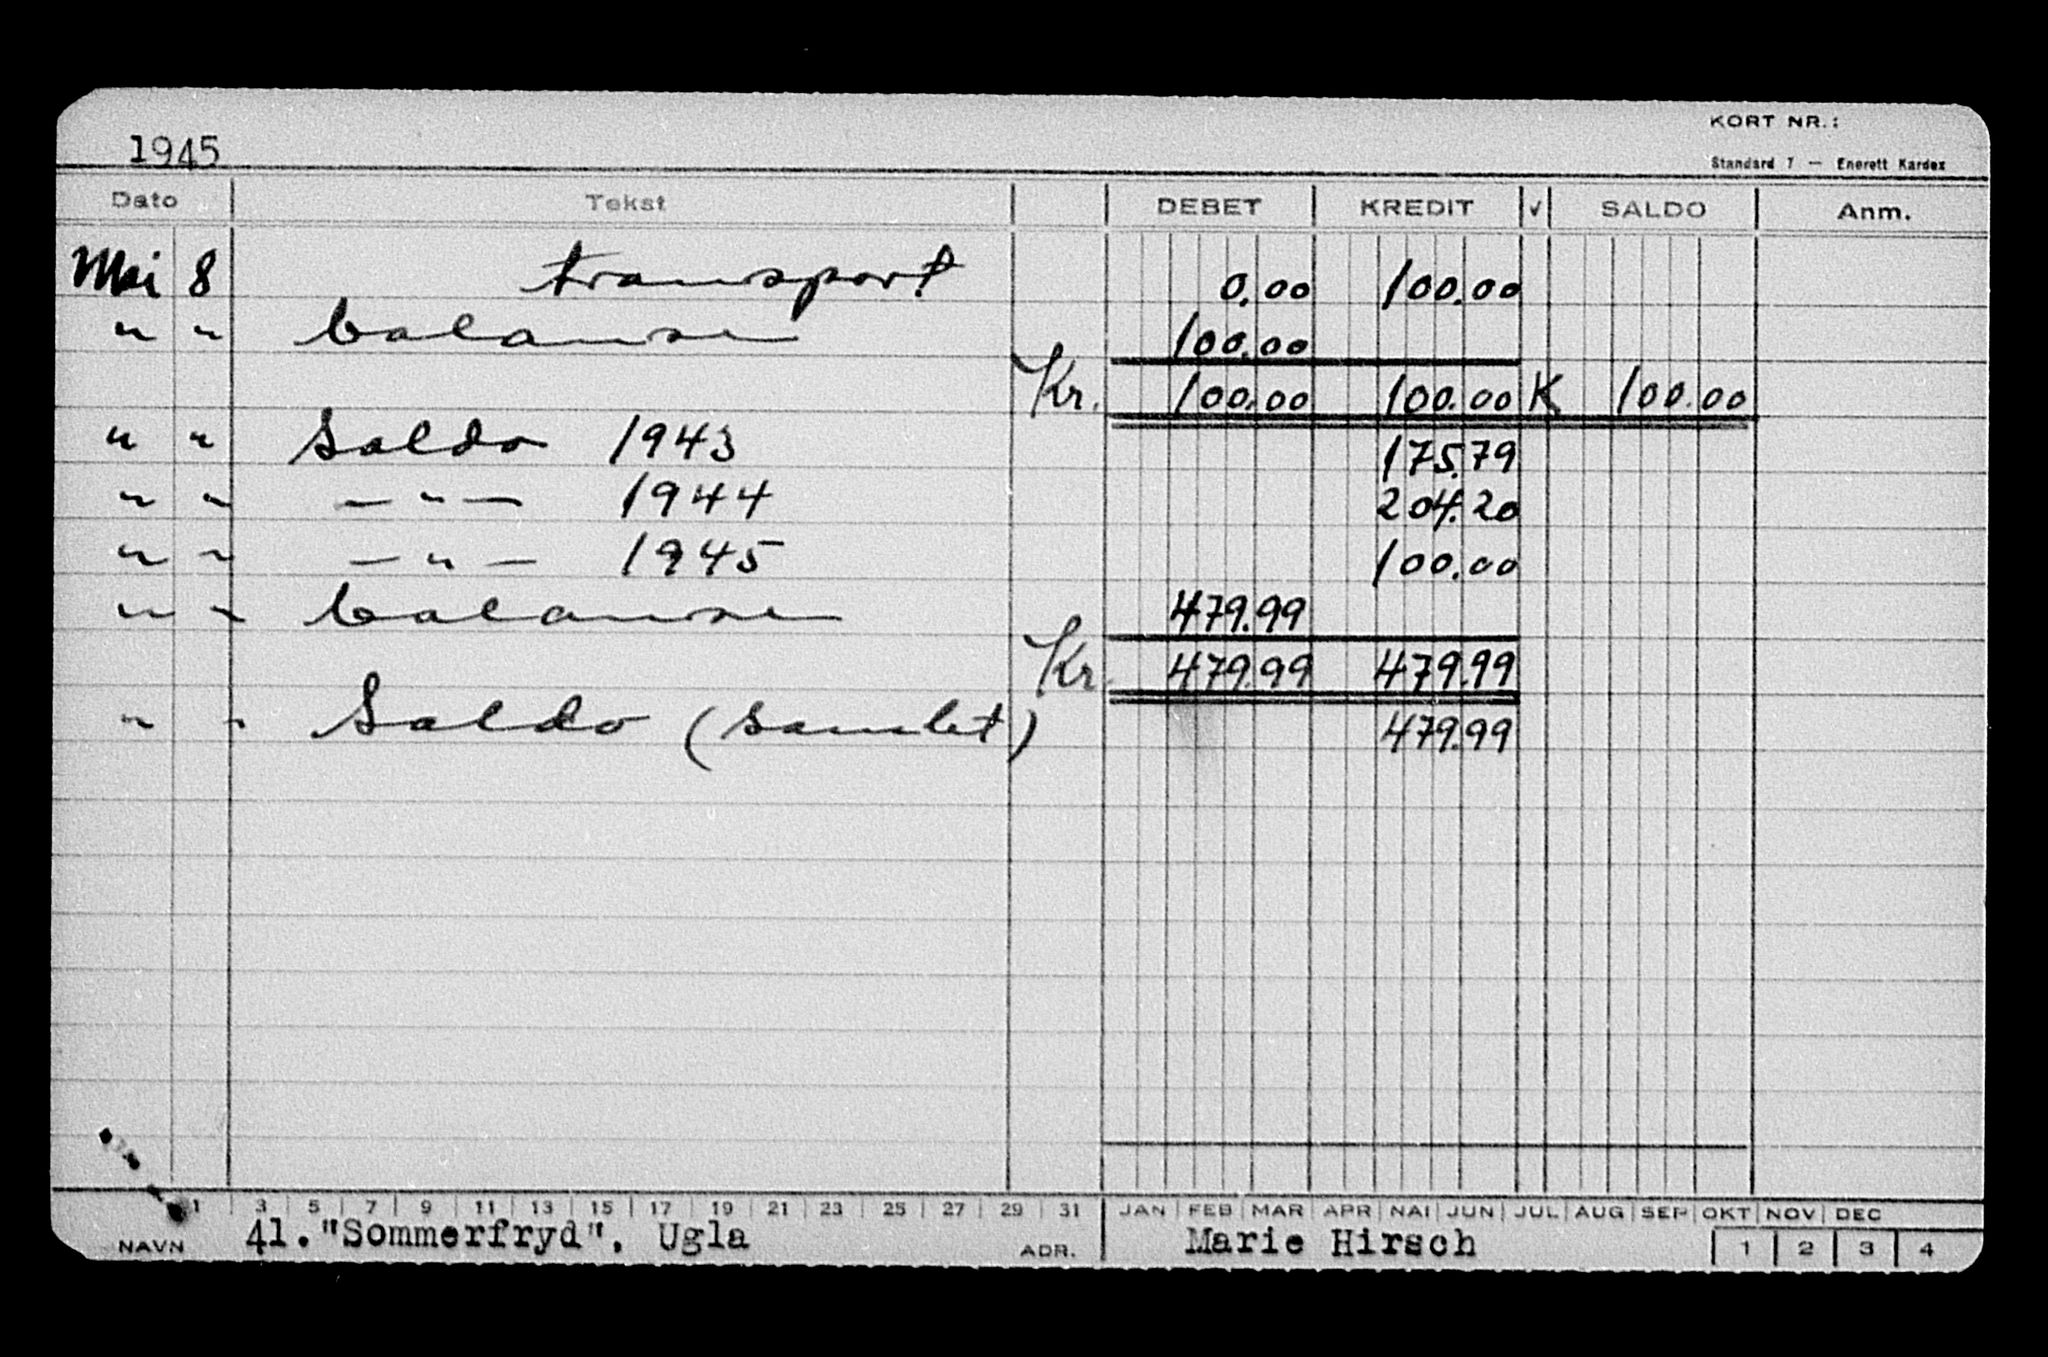 1945
KORT NR.:
Standard 7 — Enerett Kardex
Dato Tekst DEBET KREDIT √ SALDO Anm.
Mai 8 transport 0.00 100.00
" " balanse 100.00
Kr. 100.00 100.00 K 100.00
" " Saldo 1943 175.79
" " — " — 1944 204.20
" " — " — 1945 100.00
" " balanse 479.99
Kr. 479.99 479.99
" " Saldo (samlet) 479.99
1 3 5 7 9 11 13 15 17 19 21 23 25 27 29 31 JAN FEB MAR APR MAI JUN JUL AUG SEP OKT NOV DEC
NAVN 41. "Sommerfryd", Ugla ADR. Marie Hirsch 1 2 3 4